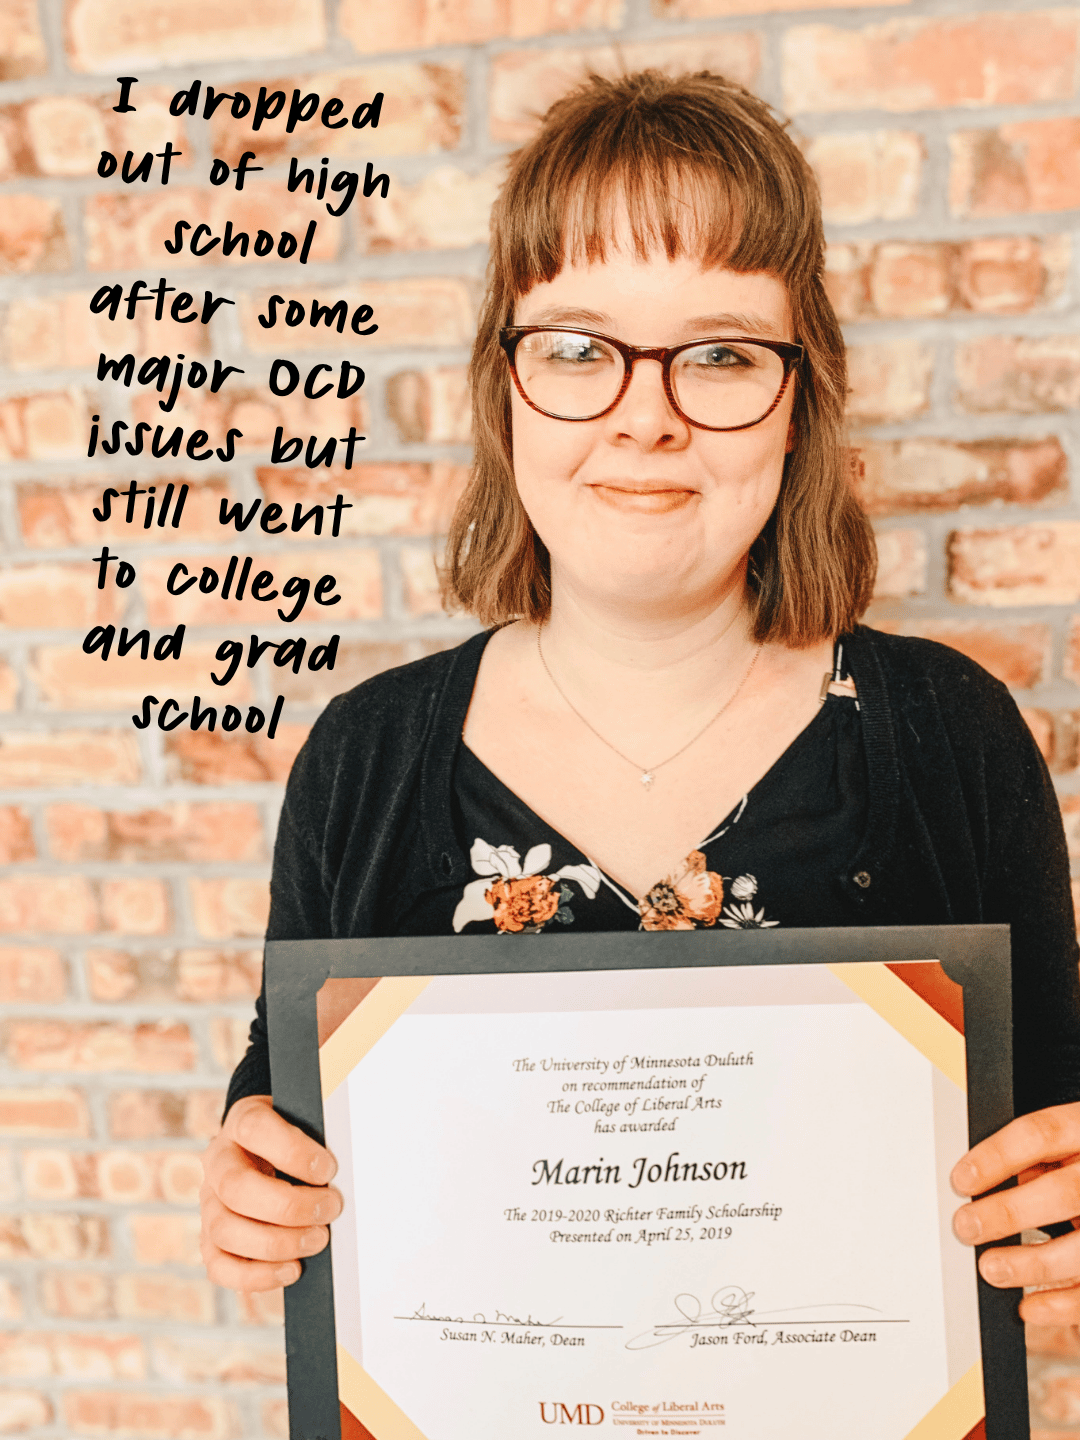 I dropped
out of high
school
after some
major OCD
issues but
still went
to college
and grad
school
The University of Minnesota Duluth
on recommendation of
The College of Liberal Arts
has awarded
Marin Johnson
The 2019-2020 Richter Family Scholarship
Presented on April 25, 2019
Susan N. Maher, Dean
Jason Ford, Associate Dean
UMD
College of Liberal Arts
University of Minnesota Duluth
Driven to Discover